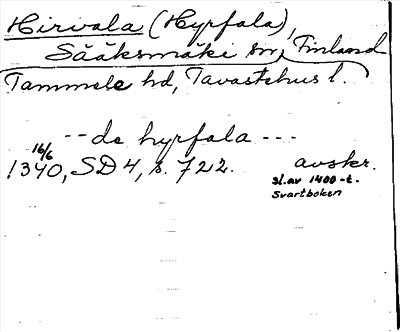 Hirvala (Hyrfala),
Sääksmäki sn, Finland
Tammele hd, Tavastehus l.
-- de hyrfala ---
16/6
1340, SD 4, s. 722. avskr.
sl. av 1400-t.
Svartboken